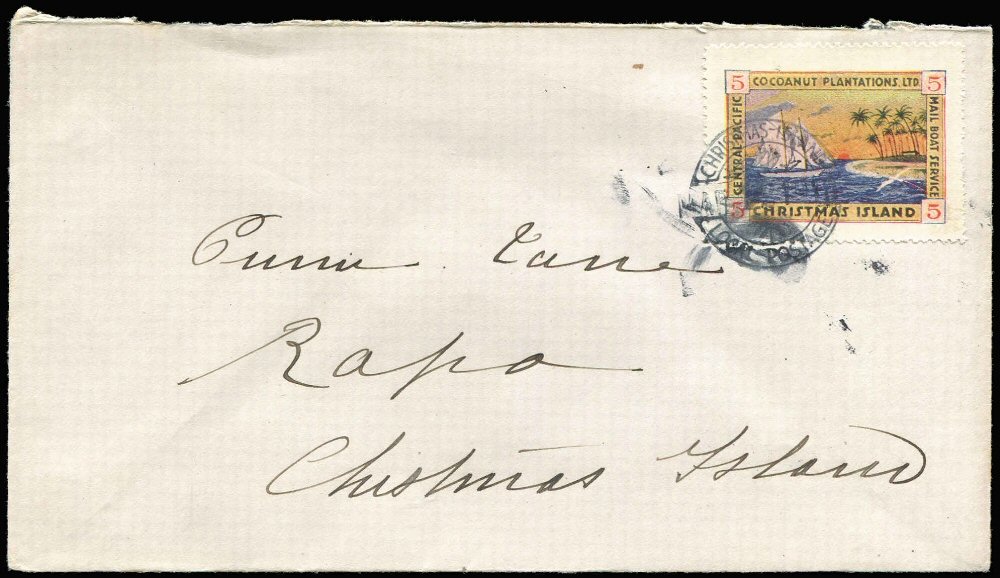 5 COCOANUT PLANTATIONS, LTD 5
CENTRAL PACIFIC
MAIL BOAT SERVICE
5 CHRISTMAS ISLAND 5
CHRISTMAS-ISLAND
POSTAGE
Puna Tane
Rapa
Christmas Island